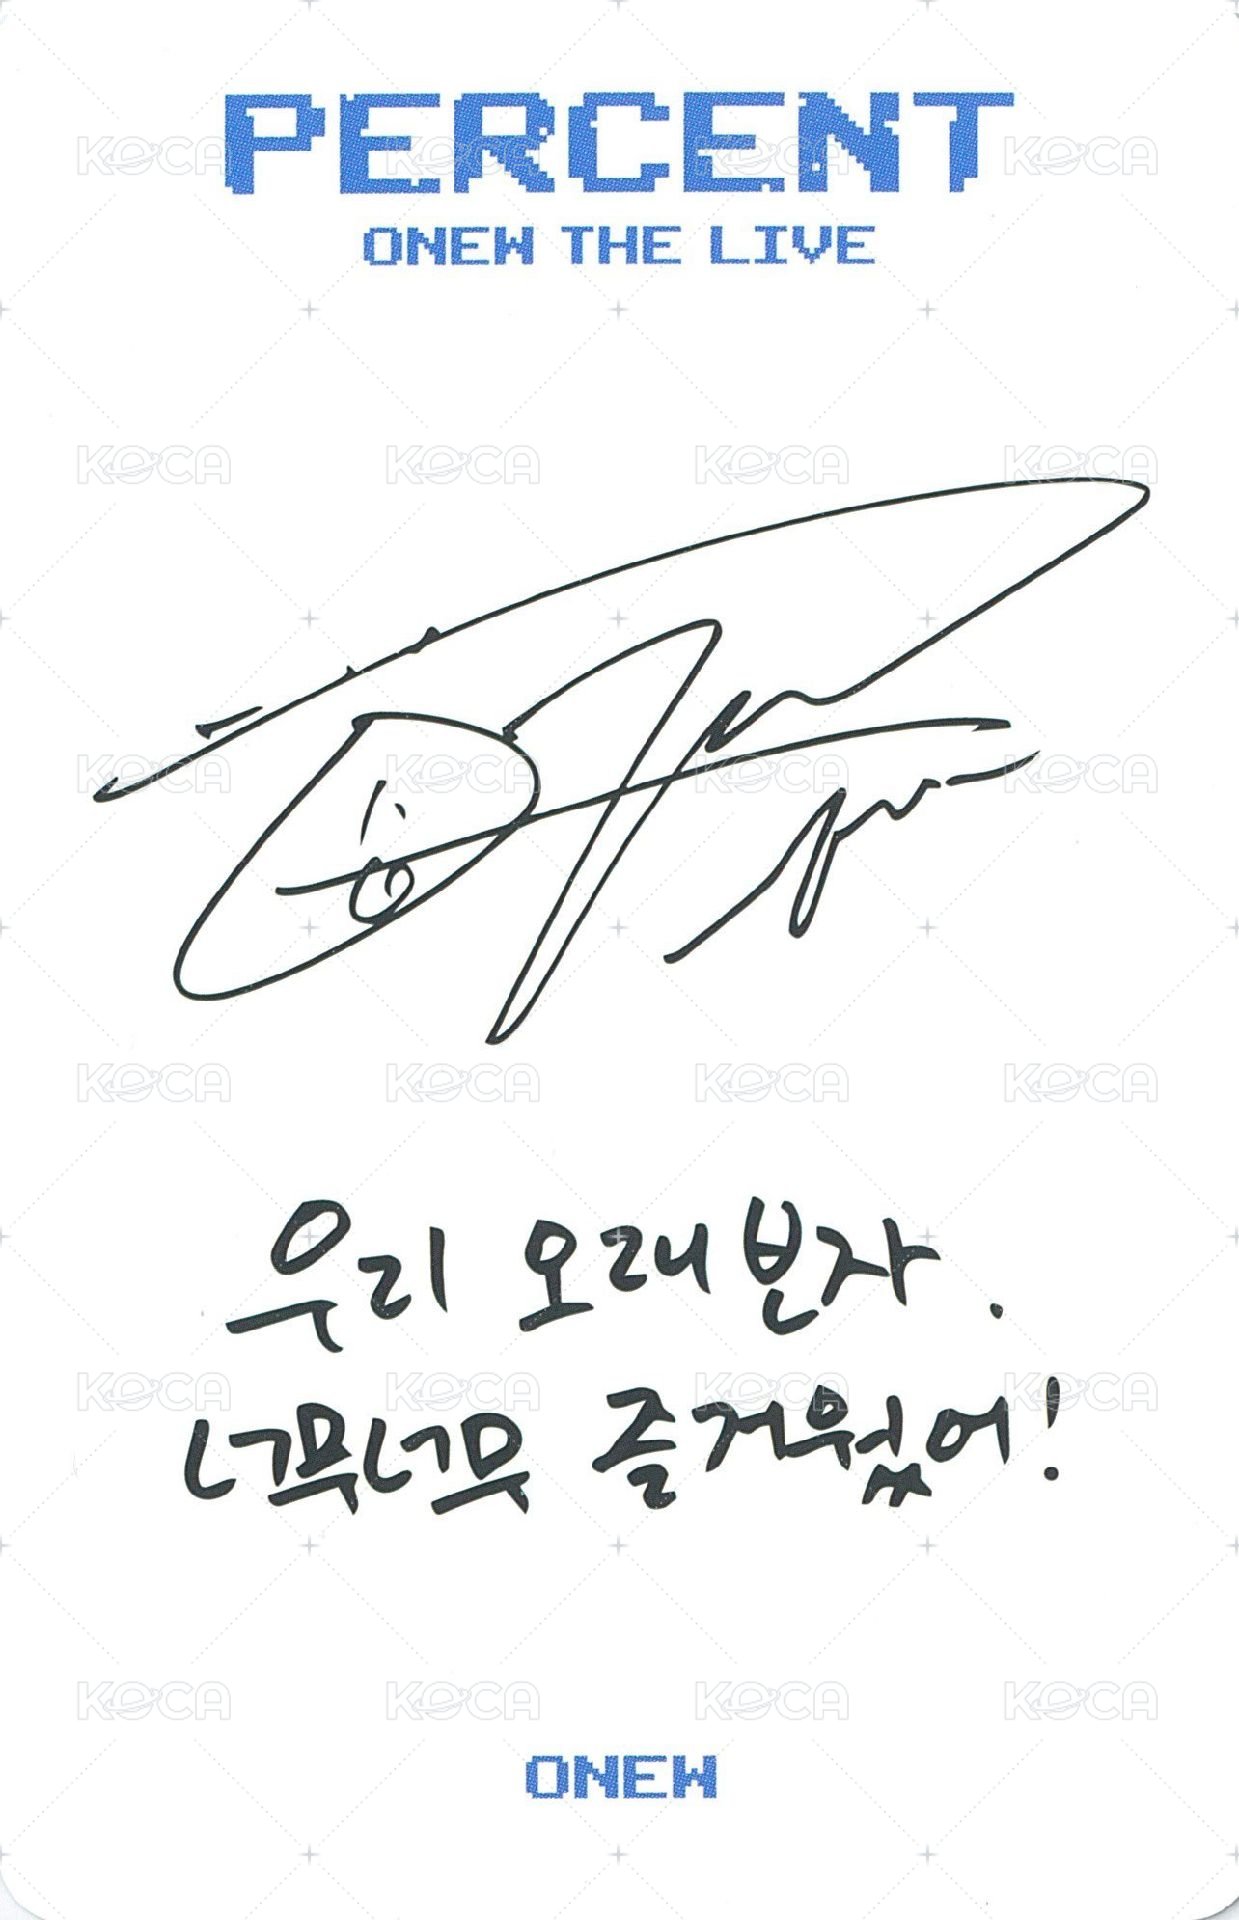 PERCENT
ONEW THE LIVE
우리 오래 본자.
너무너무 즐거웠어!
ONEW
KOCA